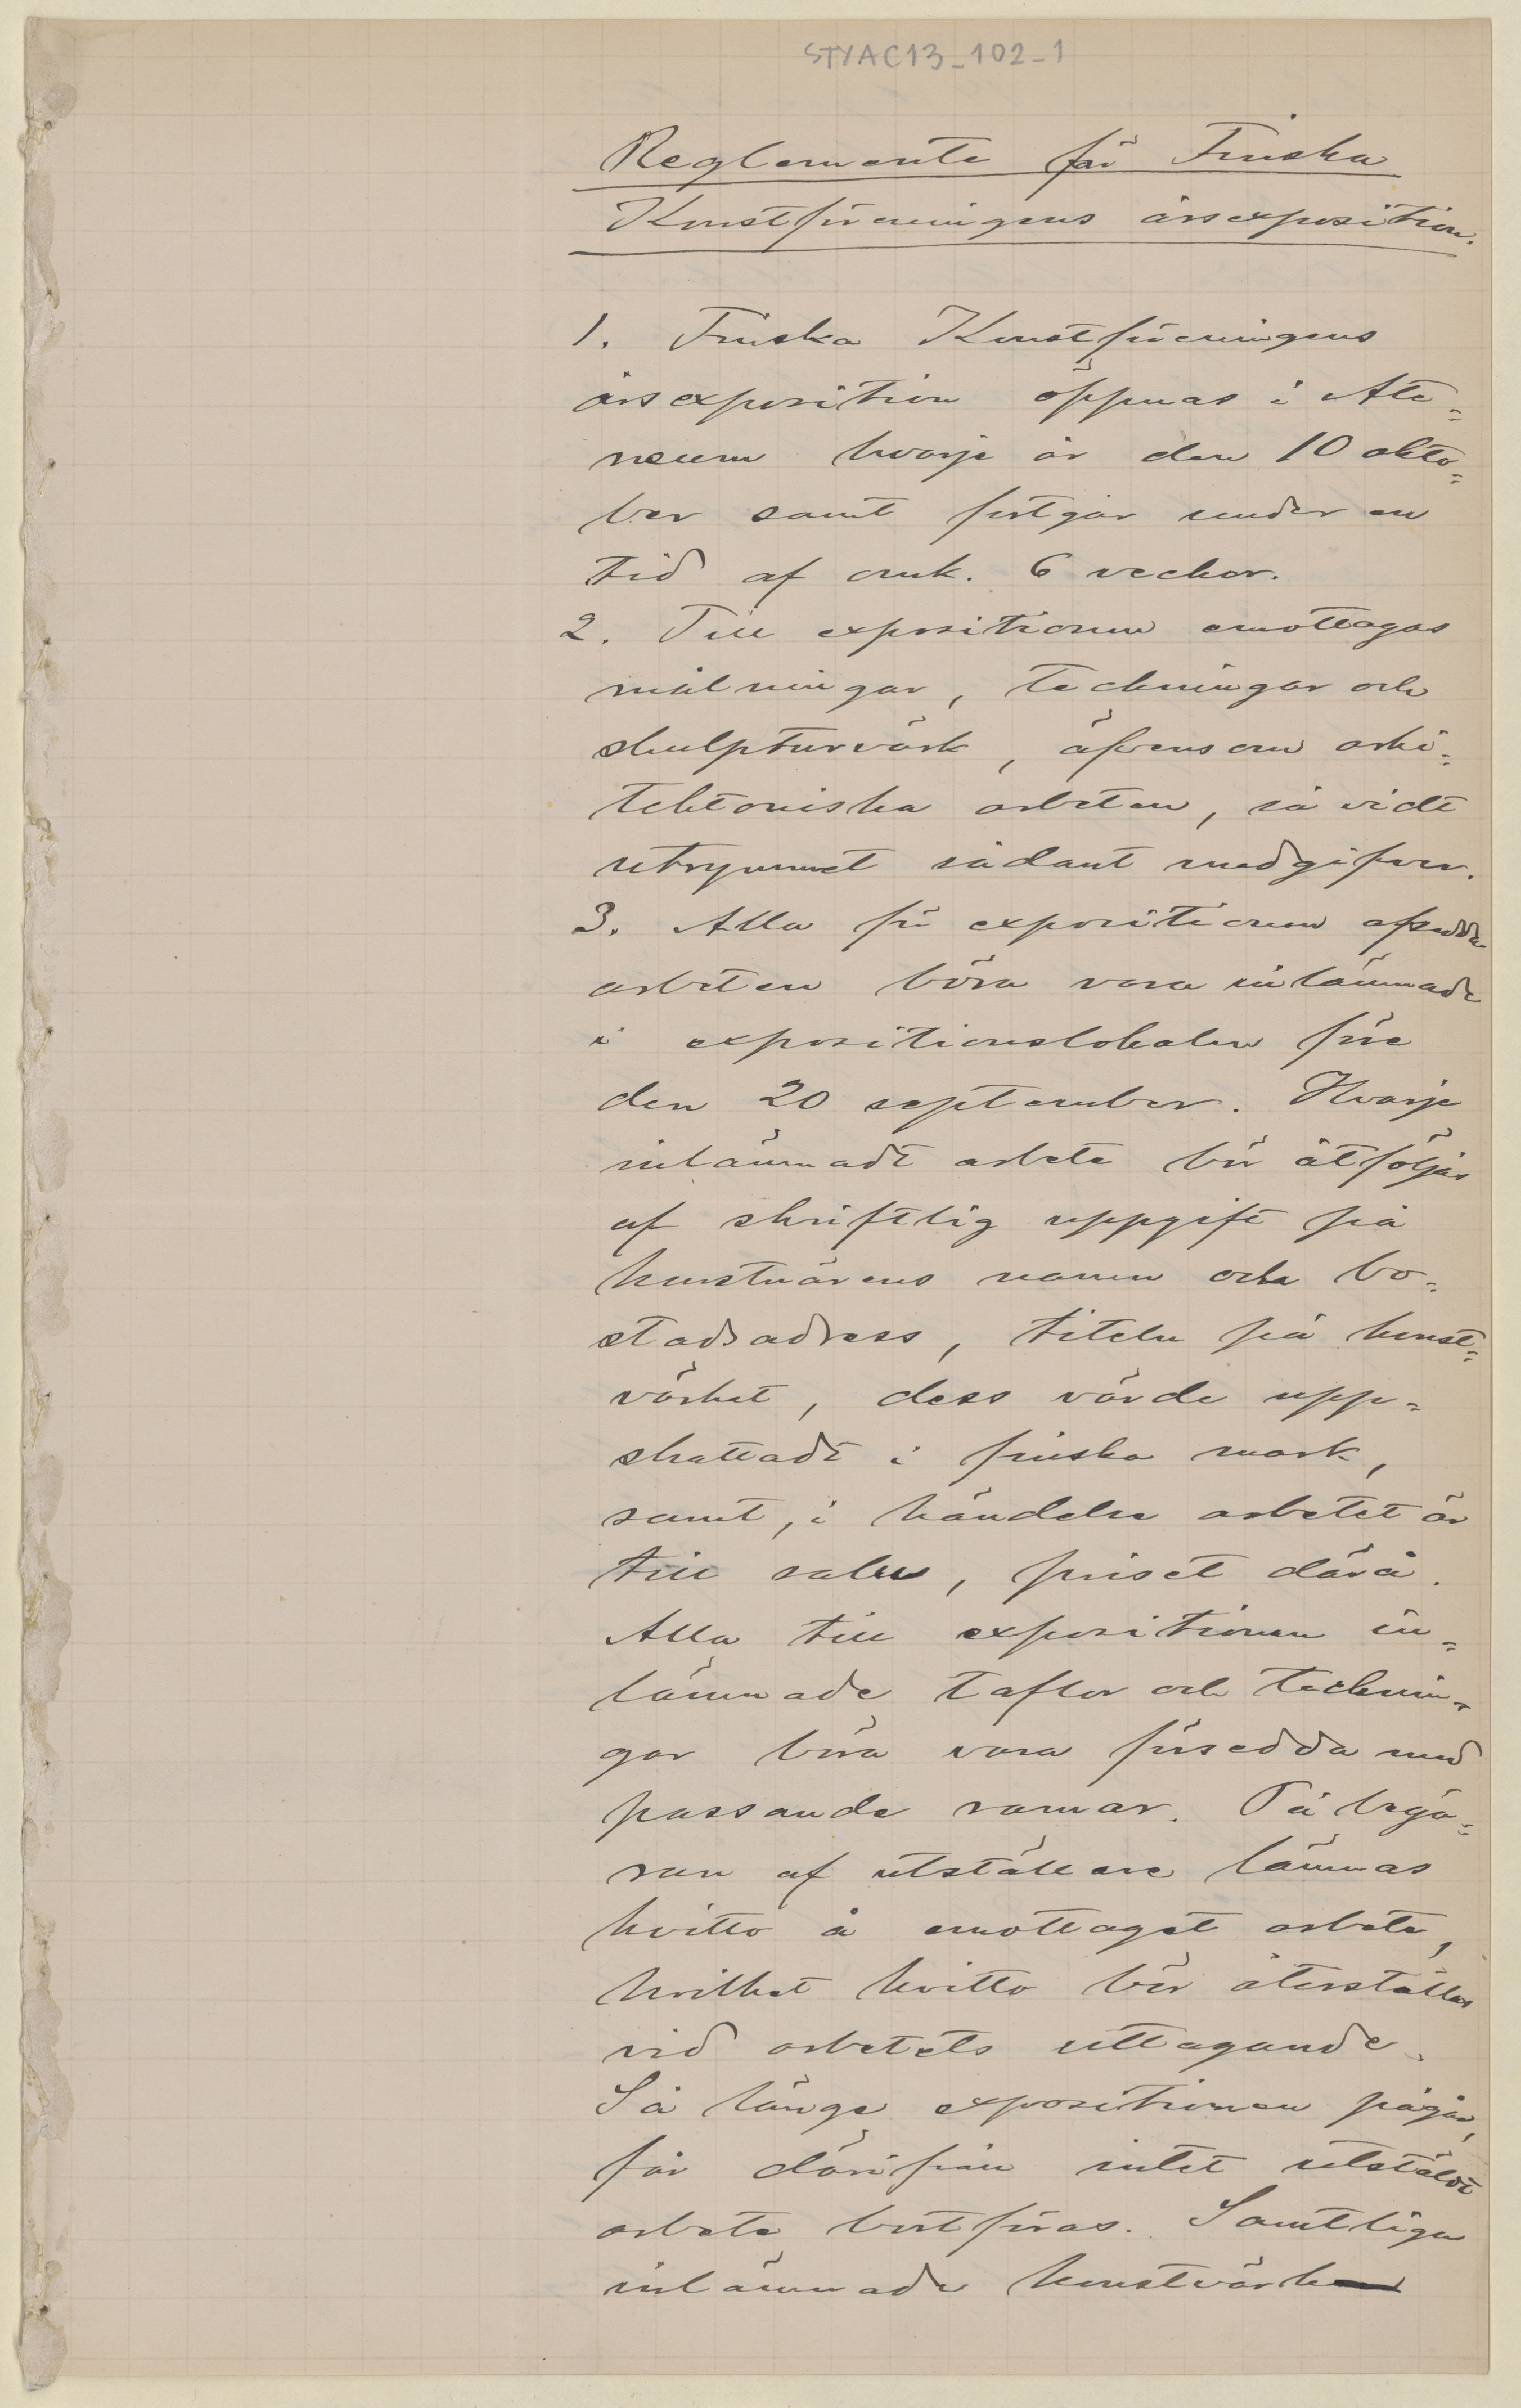 STYAC13_102_1
Reglemente för Finska
Konstföreningens årsexposition.
1. Finska Konstföreningens
årsexposition öppnas i Ate=
neum hvarje år den 10 okto=
ber samt fortgår under en
tid af omk. 6 veckor.
2. Till expositionen emottagas
målningar, teckningar och
skulpturvärk, äfvensom arki=
tektoniska arbeten, så vidt
utrymmet sådant medgifver.
3. Alla för expositionen afsedda
arbeten böra vara inlämnade
i expositionslokalen före
den 20 september. Hvarje
inlämnadt arbete bör åtföljas
af skriftlig uppgift på
konstnärens namn och bo=
stadsadress, titeln på konst=
värket, dess värde upp=
skattadt i finska mark,
samt, i händelse arbetet är
till salu, priset därå.
Alla till expositionen in=
lämnade taflor och tecknin=
gar böra vara försedda med
passande ramar. På begä=
ran af utställare lämnas
kvitto å emottaget arbete,
hvilket kvitto bör återställas
vid arbetets uttagande.
Så länge expositionen pågår,
får därifrån intet utstäldt
arbete bortföras. Samtliga
inlämnade konstvärk